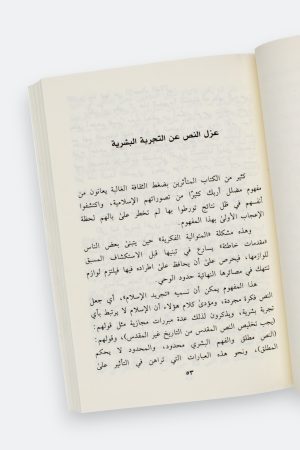 عزل النص عن التجربة البشرية
كثير من الكتاب المتأثرين بضغط الثقافة الغالبة يعانون من
مفهوم مضلل أربك كثيرًا من تصوراتهم الإسلامية، واكتشفوا
أنفسهم في ظل نتائج تورطوا بها لم تخطر على بالهم لحظة
الإعجاب الأولى بهذا المفهوم.
وهذه مشكلة «المتوالية الفكرية» حين يتبنى بعض الناس
«مقدمات خاطئة» يسارع في تبنيها قبل الاستكشاف المسبق
للوازمها، فيحرص على أن يحافظ على اطراده فيها فيلتزم لوازم
تنتهك في مصائرها النهائية حدود الوحي.
هذا المفهوم يمكن أن نسميه «تجريد الإسلام»، أي جعل
النص فكرة مجردة، ومؤدى كلام هؤلاء أن الإسلام لا يرتبط بأي
تجربة بشرية، ويذكرون لذلك عدة مبررات مجازية مثل قولهم:
(يجب تخليص النص المقدس من التاريخ غير المقدس)، وقولهم:
(النص مطلق والفهم البشري محدود، والمحدود لا يحكم
المطلق)، ونحو هذه العبارات التي تراهن في التأثير على
٥٣